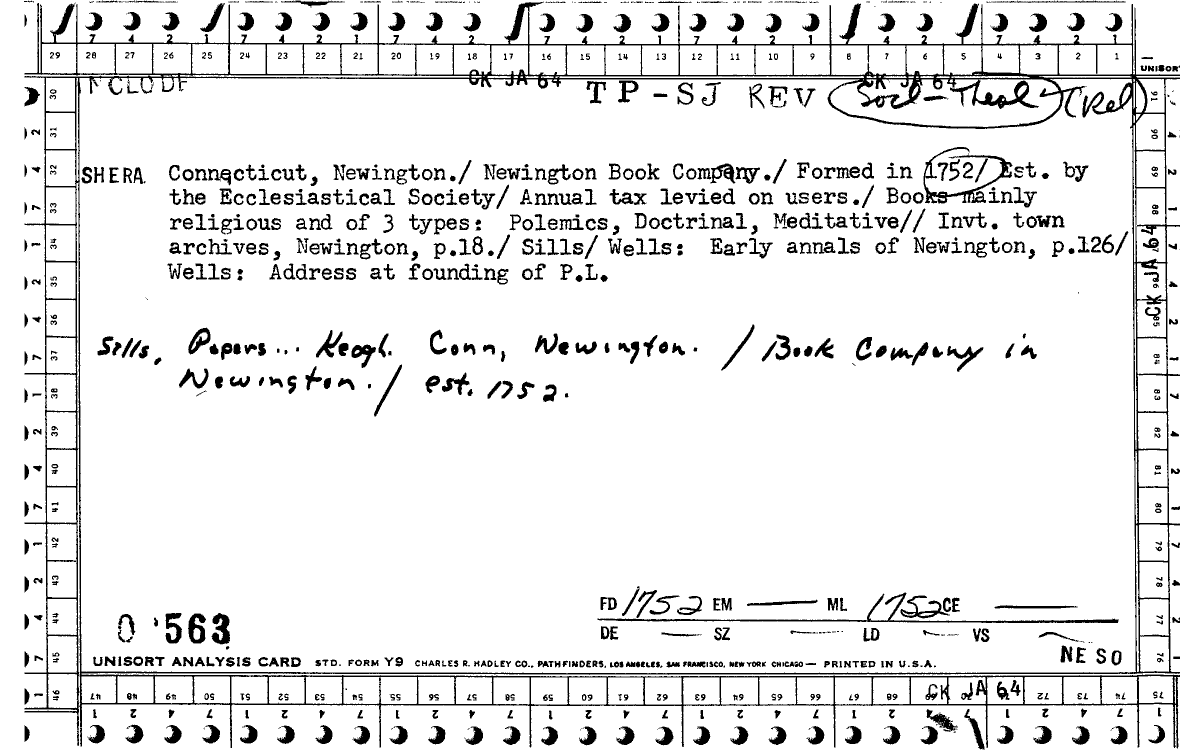 7 4 2 1 7 4 2 1 7 4 2 1 7 4 2 1 7 4 2 1 7 4 2 1 7 4 2 1
29 28 27 26 25 24 23 22 21 20 19 18 17 16 15 14 13 12 11 10 9 8 7 6 5 4 3 2 1
UNISORT
INCLUDE CK JA 64 TP-SJ REV CK JA 64 Socl - Theol (Rel)
SHERA Connecticut, Newington./ Newington Book Company./ Formed in 1752/ Est. by
the Ecclesiastical Society/ Annual tax levied on users./ Books mainly
religious and of 3 types: Polemics, Doctrinal, Meditative// Invt. town
archives, Newington, p.18./ Sills/ Wells: Early annals of Newington, p.126/
Wells: Address at founding of P.L.
CK JA 64
Sills, Papers... Keogh. Conn, Newington. / Book Company in
Newington. / est. 1752.
FD 1752 EM — ML 1752 CE —
DE — SZ — LD — VS —
0 563
NE SO
UNISORT ANALYSIS CARD STD. FORM Y9 CHARLES R. HADLEY CO., PATHFINDERS, LOS ANGELES, SAN FRANCISCO, NEW YORK CHICAGO — PRINTED IN U.S.A.
30 31 32 33 34 35 36 37 38 39 40 41 42 43 44 45 46
91 90 89 88 87 86 85 84 83 82 81 80 79 78 77 76
47 48 49 50 51 52 53 54 55 56 57 58 59 60 61 62 63 64 65 66 67 68 CK JA 64 72 73 74 75
1 2 4 7 1 2 4 7 1 2 4 7 1 2 4 7 1 2 4 7 1 2 4 7 1 2 4 7